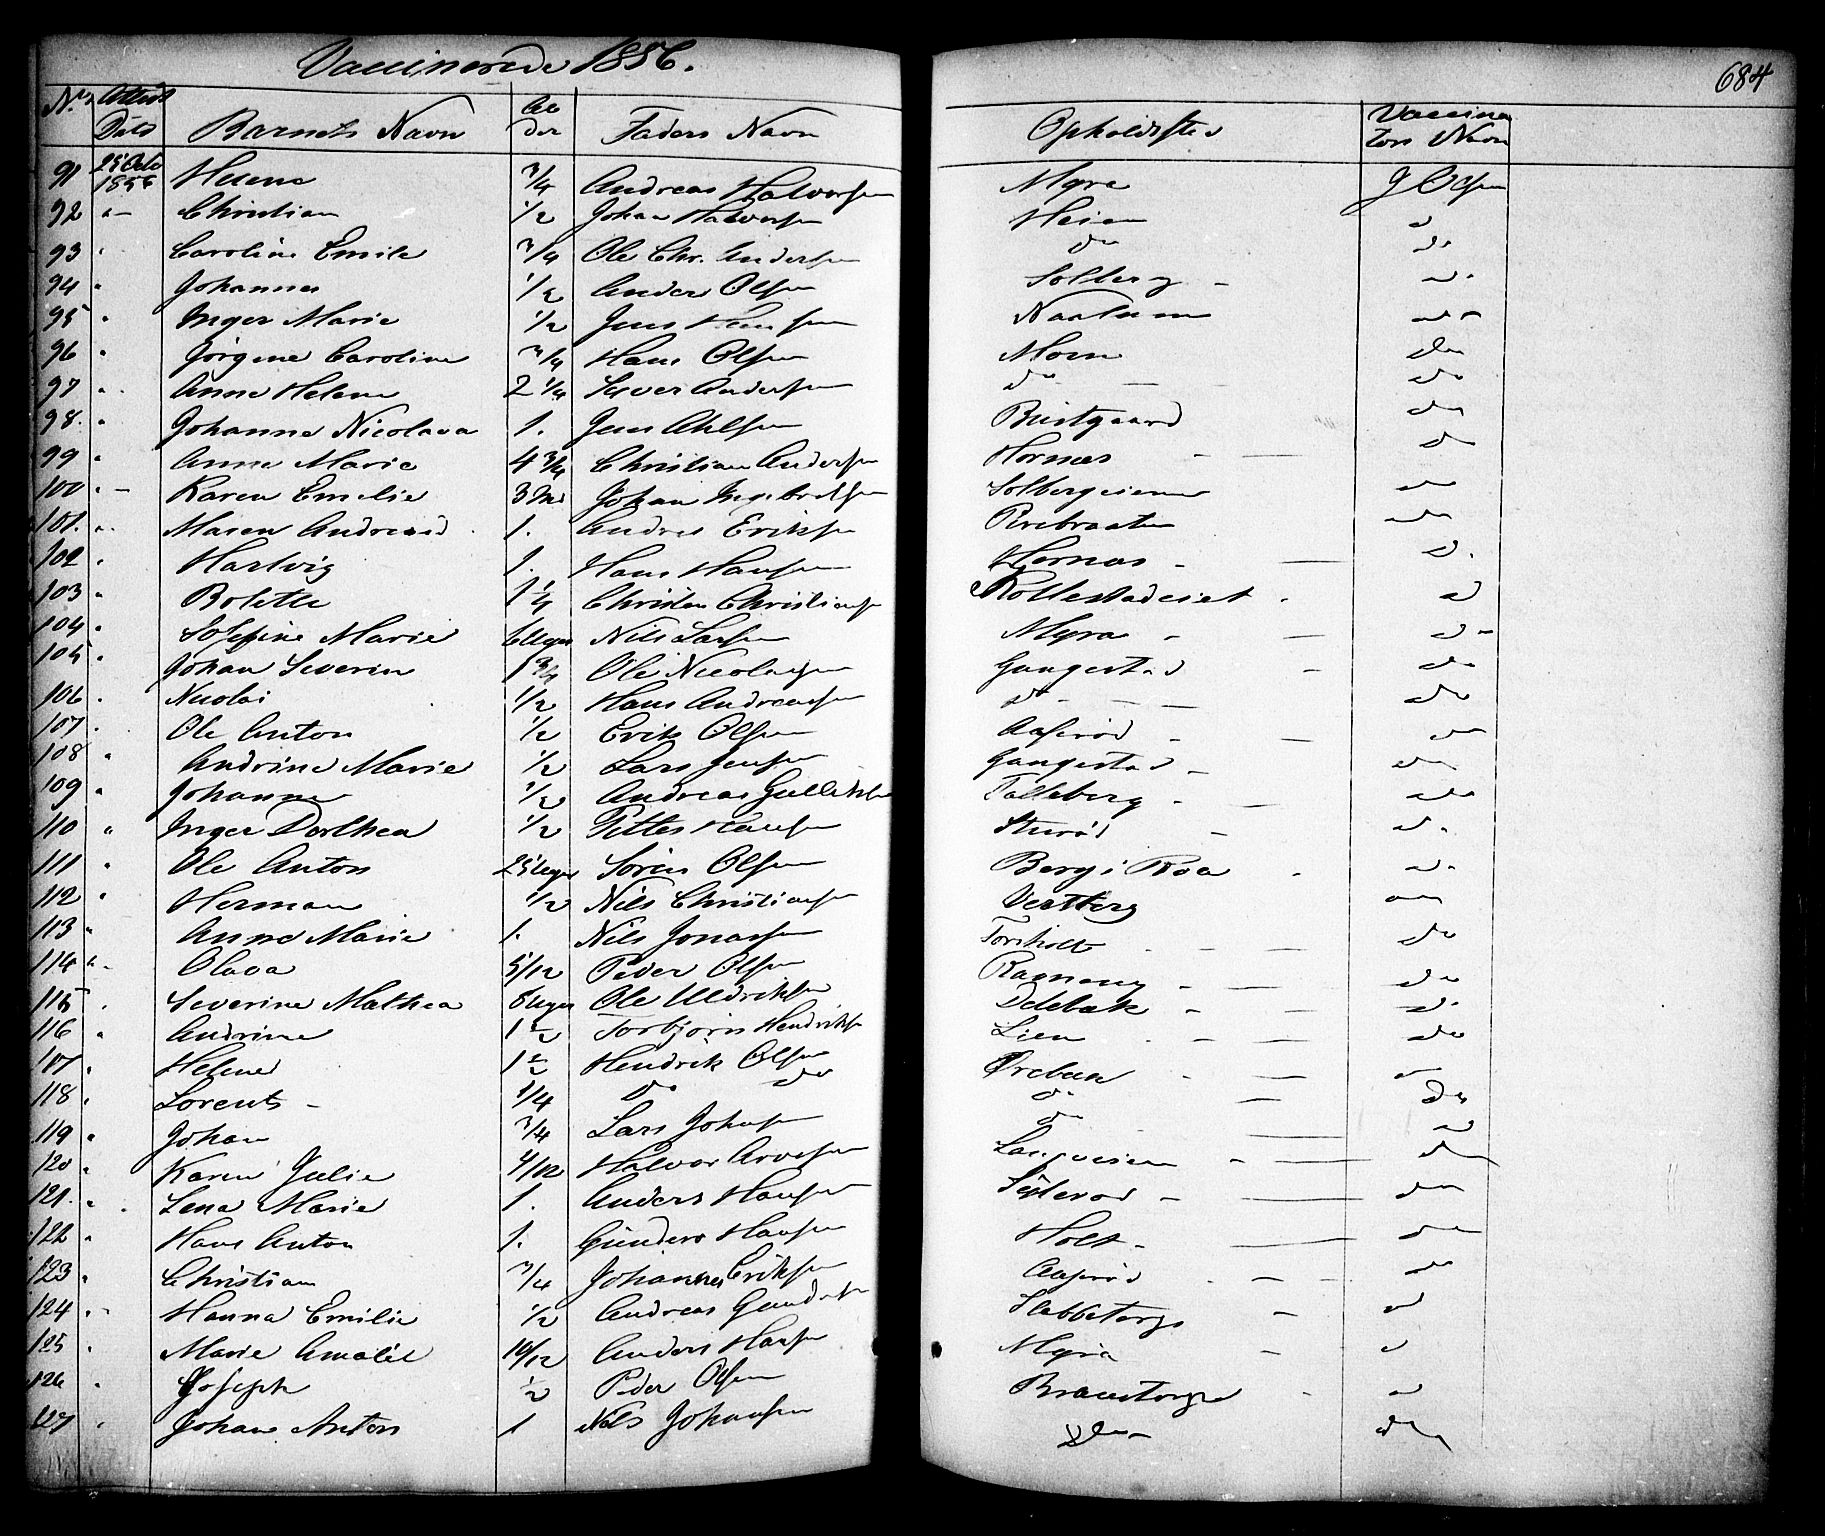 Vaccinerede 1856.
684
No. Attest Dato Barnets Navn Alder Faders Navn Opholdssted Vaccinators Navn
91 25 Octo 1856 Helene 3/4 Andreas Halvorsen Myre J Olsen
92 " - Christian 1/2 Johan Halvorsen Heien d
93 " Caroline Emilie 3/4 Ole Chr. Andersen do do
94 " Johannes 1/2 Anders Olsen Solberg - do
95 " Inger Marie 1/2 Jens Hansen Naalum do
96 " Jörgine Caroline 3/4 Hans Olsen Moen do
97 " Anne Helene 2 1/4 Syver Andersen do - do
98. " Johanne Nicolava 1. Jens Ahlsen do
99 " Anne Marie 4 3/4 Christian Andersen Hornæs - do
100 " - Karen Emilie 3 Johan Ingebretsen Solbergeiene do
101. " Maren Andrea 1. Andres Eriksen do
102 " Hartvig 1. Hans Hansen Hornæs - d.
103 " Bolette 1 1/4 Christen Christiansen Rollestadeiet - d
104 " Josefine Marie 6 Uger Nils Larsen Myra - d
105 " Johan Severin 1 3/4 Ole Nicolaysen Gangestad - do
106 " Nicolai 1/2 Hans Andreassen do - do
107 " Ole Anton 1/2 Erik Olsen Aaserød - do
108 " Andrine Marie 1/2 Lars Jensen Gangestad - do
109 " Johanne 1/2 Andreas Gulliksen - do
110 " Inger Dorthea 1/2 Petter Hansen - do
111 " Ole Anton 25 Uger Sören Olsen Berg i Roa - do
112 " Herman 1/2 Nils Christiansen do
113 " Anne Marie 1. Nils Jonassen Torsholt - do
114 " - Olava 5/12 Peder Olsen - do
115 " Severine Mathea 8 Uger Ole Uldriksen Delebæk - do
116 " Andrine 1 1/2 Torbjörn Hendriksen Lien - do
117 " Helene 1 1/2 Hendrik Olsen Ørebæk -
118 " Lorents - 1/4 do do do - do
119 " Johan 3/4 Lars Johnsen do - do
120 " Karen Julie 4/12 Halvor Arvesen - do
121. " Lena Marie 1. Anders Hansen - do
122 " Hans Anton 1. Gunders Hansen Holt - do
123 " Christian 3/4 Johannes Eriksen Aaserød - do
124 " - Hanna Emilie 1/2 Andreas Gundersen - d
125 " Marie Amalie 10/12 Anders Hansen Myra - d
126 " Joseph 1/2 Peder Olsen - d
127 " Johan Anton 1 Nils Johansen do do